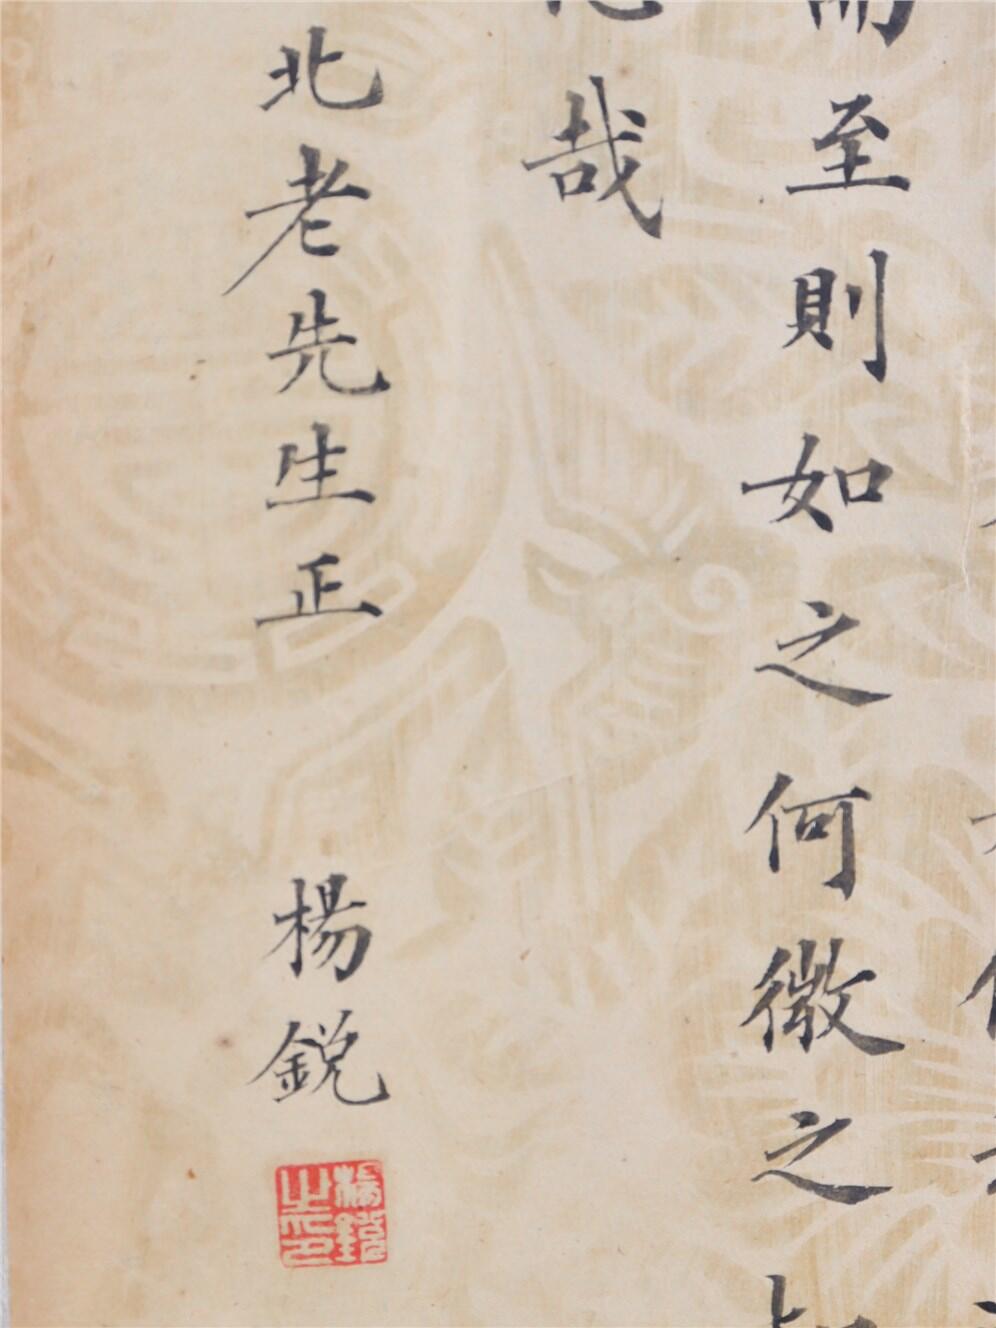 至則如之何徵之
哉
北老先生正 楊銳
楊銳之印